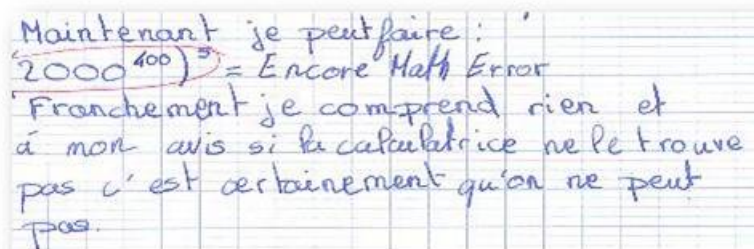 Maintenant je peut faire :
(2000^400)^5 = Encore Math Error
Franchement je comprend rien et
à mon avis si la calculatrice ne le trouve
pas c'est certainement qu'on ne peut
pas.